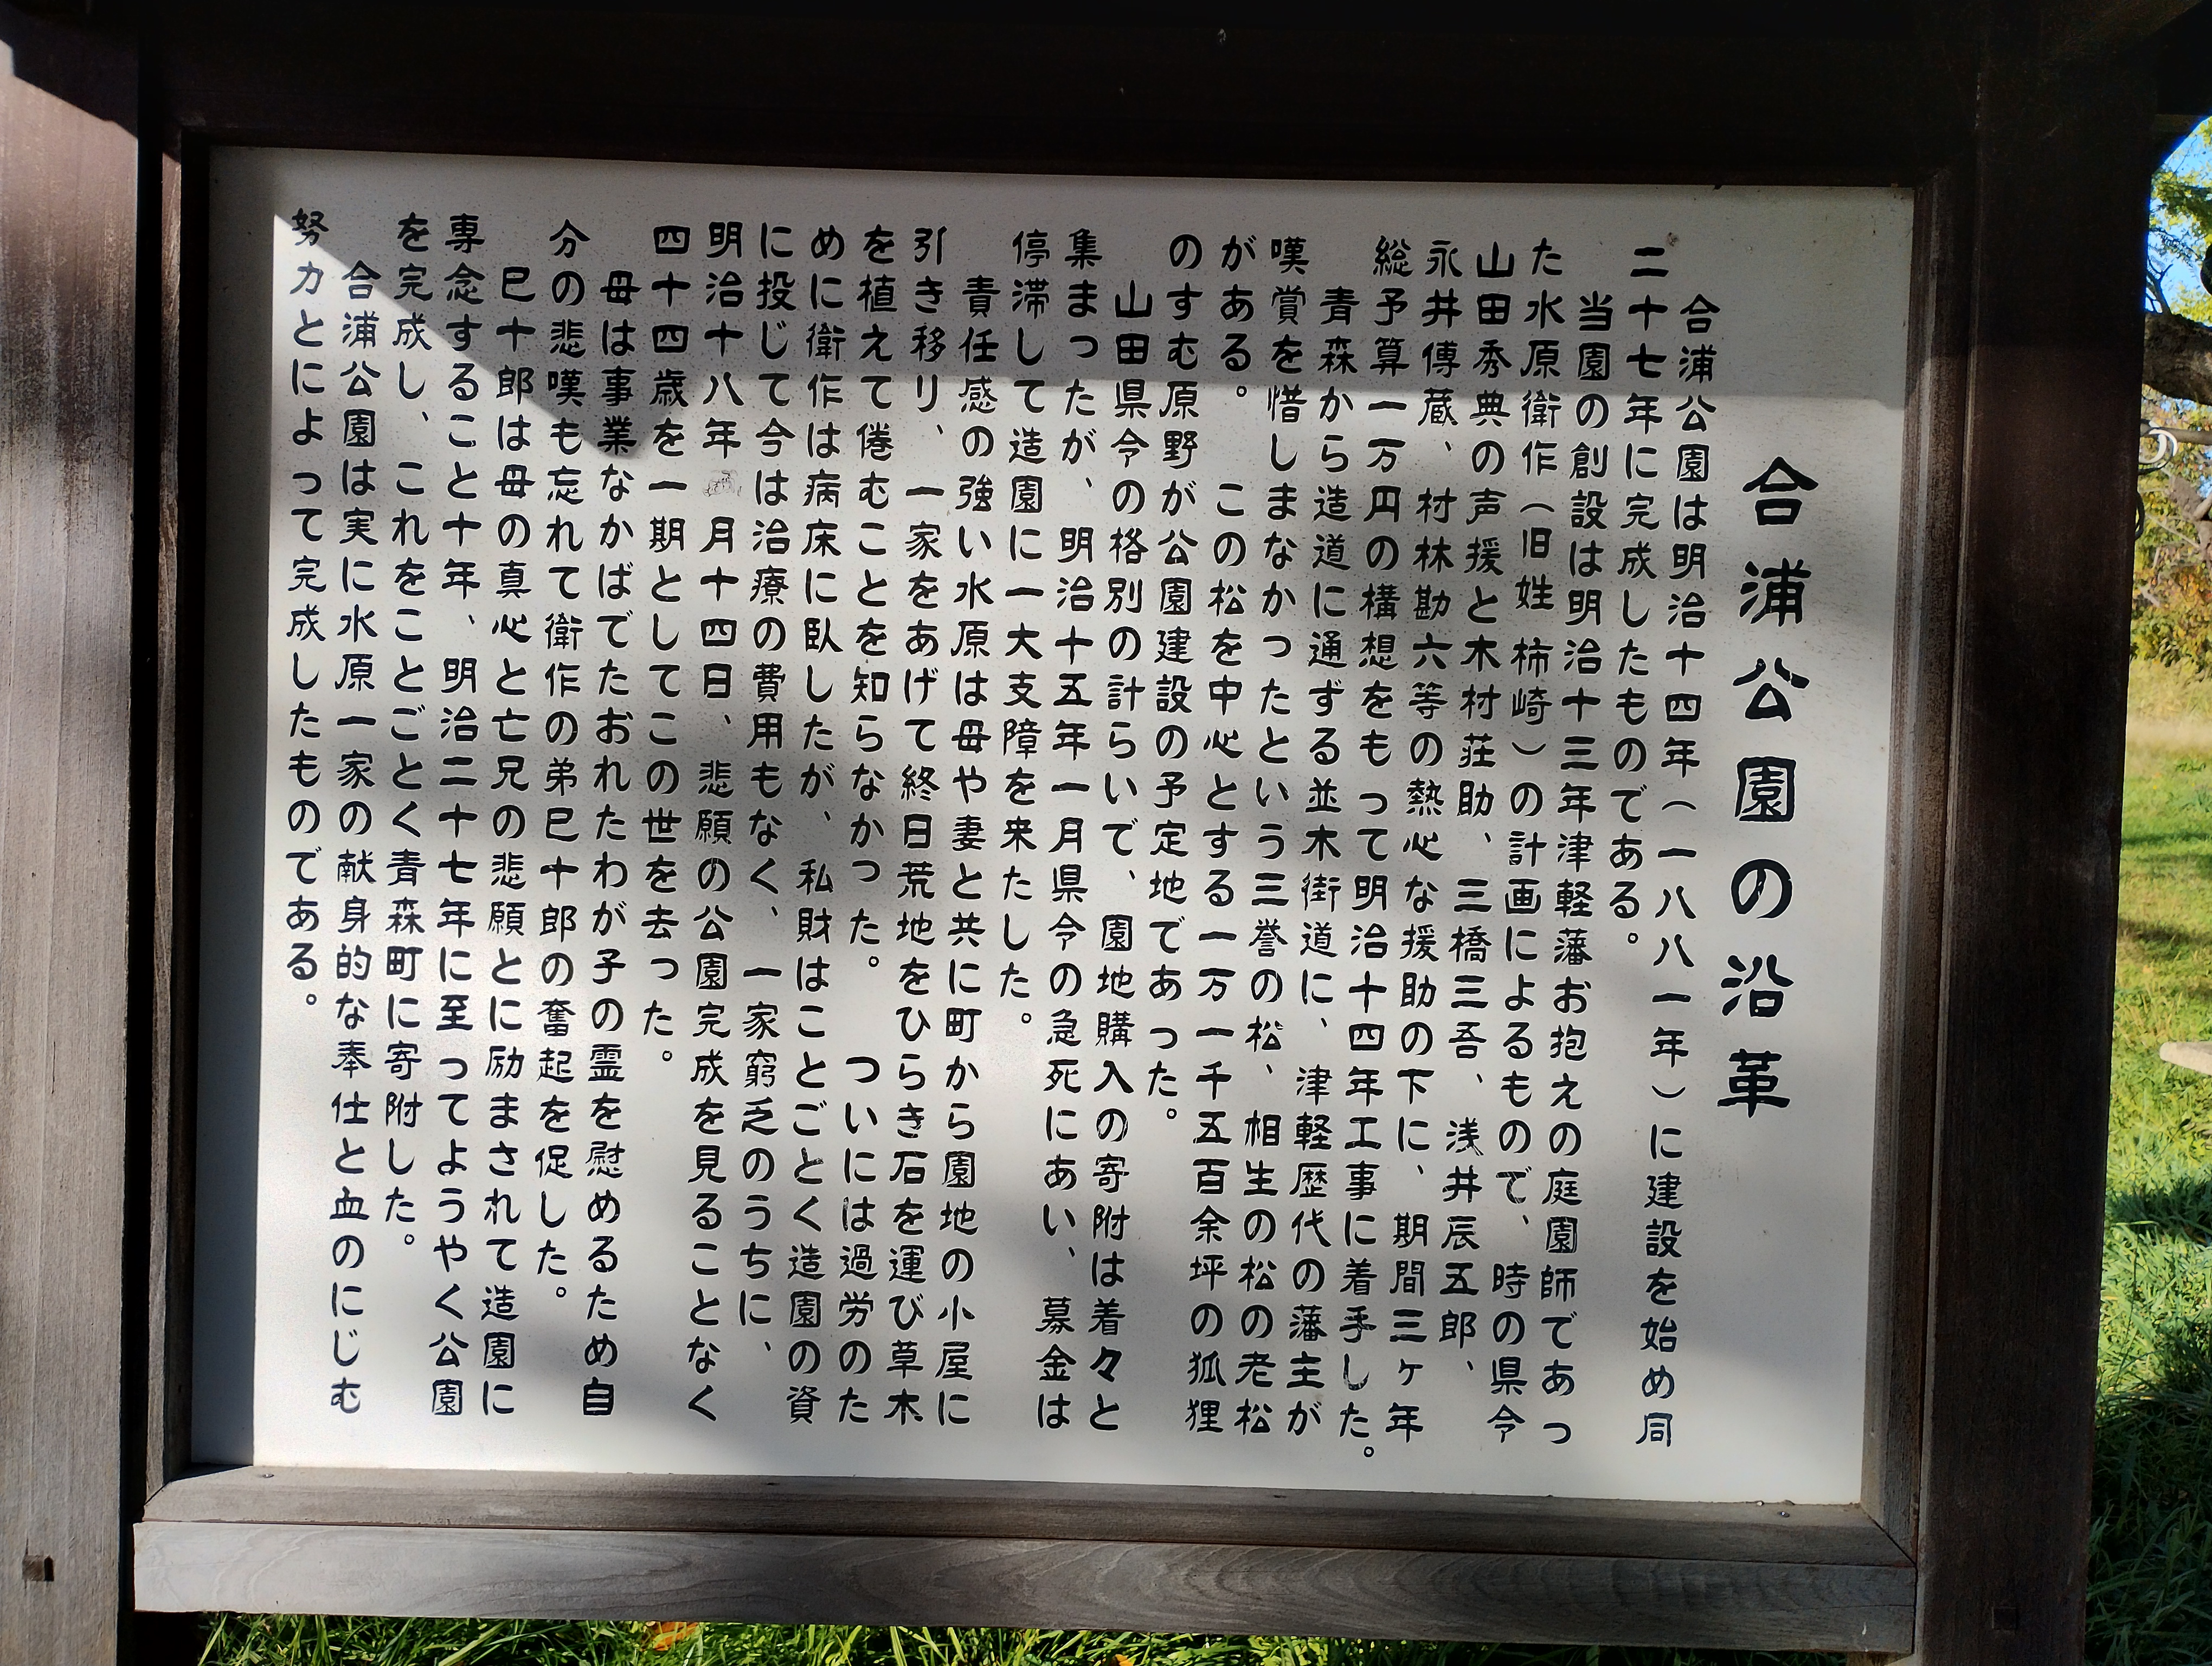 合浦公園の沿革
合浦公園は明治十四年（一八八一年）に建設を始め同
二十七年に完成したものである。
当園の創設は明治十三年津軽藩お抱えの庭園師であっ
た水原衛作（旧姓 柿崎）の計画によるもので、時の県令
山田秀典の声援と木村荘助、三橋三吾、浅井辰五郎、
永井傳蔵、村林勘六等の熱心な援助の下に、期間三ヶ年
総予算一万円の構想をもって明治十四年工事に着手した。
青森から造道に通ずる並木街道に、津軽歴代の藩主が
嘆賞を惜しまなかったという三誉の松、相生の松の老松
がある。この松を中心とする一万一千五百余坪の狐狸
のすむ原野が公園建設の予定地であった。
山田県令の格別の計らいで、園地購入の寄附は着々と
集まったが、明治十五年一月県令の急死にあい、募金は
停滞して造園に一大支障を来たした。
責任感の強い水原は母や妻と共に町から園地の小屋に
引き移リ、一家をあげて終日荒地をひらき石を運び草木
を植えて倦むことを知らなかった。ついには過労のた
めに衛作は病床に臥したが、私財はことごとく造園の資
に投じて今は治療の費用もなく、一家窮乏のうちに、
明治十八年 月十四日、悲願の公園完成を見ることなく
四十四歳を一期としてこの世を去った。
母は事業なかばでたおれたわが子の霊を慰めるため自
分の悲嘆も忘れて衛作の弟巳十郎の奮起を促した。
巳十郎は母の真心と亡兄の悲願とに励まされて造園に
専念すること十年、明治二十七年に至ってようやく公園
を完成し、これをことごとく青森町に寄附した。
合浦公園は実に水原一家の献身的な奉仕と血のにじむ
努力とによって完成したものである。